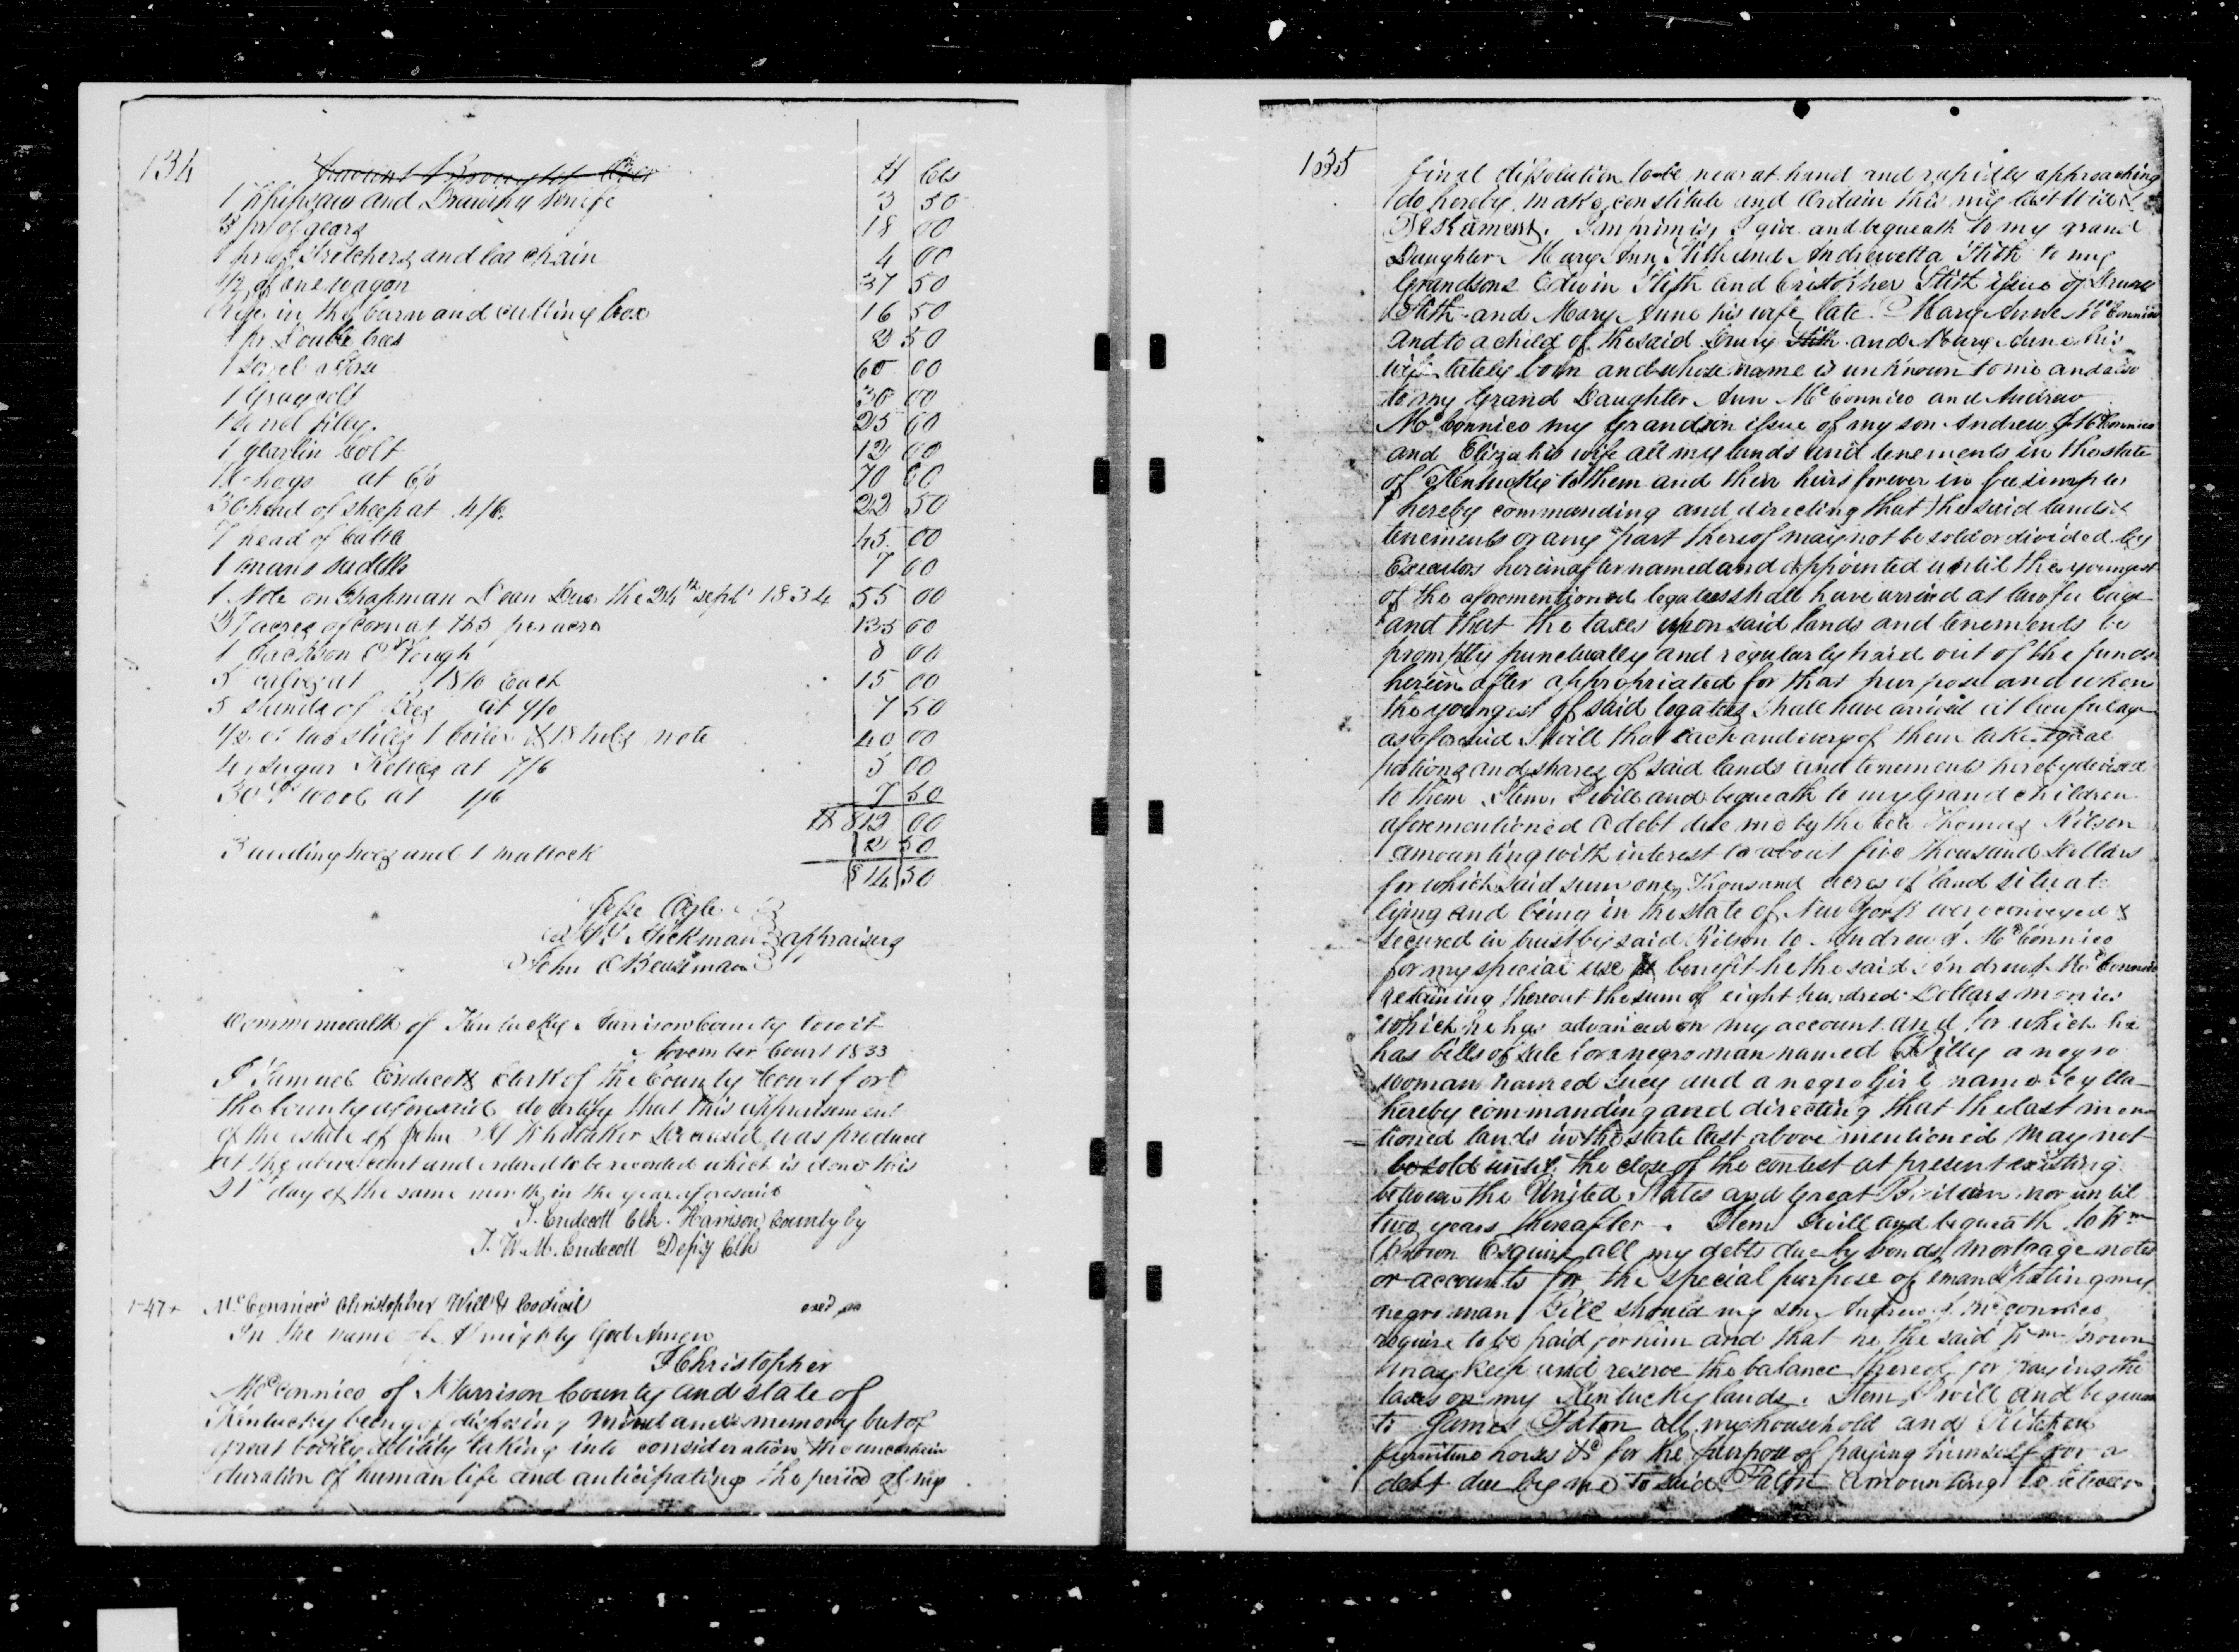 134
Amount Brought Over $ Cts
1 Whipsaw and Drawing knife 3 50
3 pr of gears 18 00
1 pr of Stretchers and log chain 4 00
1/2 of one wagon 37 50
Rye in the barn and cutting box 16 50
1 pr Double trees 2 50
1 Sorrel horse 60 00
1 Gray colt 30 00
1 Sorrel filey. 25 00
1 yearlin Colt 12 00
hogs at 70 00
30 head of sheep at 4/6. 22 50
7 head of Cattle 45 00
1 mans saddle 7 00
1 Note on Chapman Dean Due the 24th Sept 1834 55 00
27 acres of corn at $5 per acre 135 00
1 Jackson Plough 8 00
5 calves at 18/0 Each 15 00
5 stands of Bees at 9/0 7 50
1/2 of two stills 1 boiler & 18 tubs note 40 00
4 sugar Kettles at 7/6 5 00
30 lbs wool at 1/6 7 50
$ 812 00
3 weeding hoes and 1 mattock 2 50
814 50
Jesse
Hickman appraisers
John
Commonwealth of Kentucky Harrison County towit
November Court 1833
I Samuel Endicott Clerk of the County Court for
the County aforesaid do certify that this appraisement
of the estate of John M Whitaker Deceased was produced
at the above court and ordered to be recorded which is done this
21st day of the same month in the year aforesaid
S. Endecott Clk. Harrison County by
J. W. M. Endecott Depy Clk
1-47+ McConnico's Christopher Will & Codicil
In the name of Almighty God Amen
I Christopher
McConnico of Harrison County and state of
Kentucky being of disposing mind and memory but of
great bodily debility taking into consideration the uncertain
duration of human life and anticipating the period of my
135
final dissolution to be near at hand and rapidly approaching
do hereby make, constitute and ordain this my last Will &
Testament. Imprimis, I give and bequeath to my grand
Daughter Mary Ann Stith and Andrewetta Stith to my
Grandsons Edwin Stith and Cristopher Stith issue of Drury
Stith and Mary Anne his wife late Mary Anne McConnico
And to a child of the said Drury Stith and Mary Anne his
wife lately born and whose name is unknown to me and also
to my Grand Daughter Ann McConnico and Andrew
McConnico my Grandson issue of my son Andrew J McConnico
and Eliza his wife all my lands and tenements in the state
of Kentucky to them and their heirs forever in fee simple
hereby commanding and directing that the said lands &
tenements or any part thereof may not be sold or divided by
Executors hereinafter named and appointed until the youngest
of the aforementioned legatees shall have arrived at lawful age
and that the taxes upon said lands and tenements be
promptly punctually and regularly paid out of the funds
herein after appropriated for that purpose and when
the youngest of said legatees shall have arrived at lawful age
as aforesaid I will that each and every of them take equal
potions and shares of said lands and tenements hereby devised
to them Item. I will and bequeath to my Grand children
aforementioned a debt due me by the late Thomas Kilson
amounting with interest to about five thousand Dollars
for which said sum one thousand acres of land situat
lying and being in the state of New York were conveyed &
secured in trust by said Kilson to Andrew J McConnico
for my special use & benefit he the said Andrew J McConnico
retaining thereout the sum of eight hundred Dollars monies
which he has advanced on my account and for which he
has bills of sale for a negro man named Billy a negro
woman named Lucy and a negro Girl name Scylla
hereby commanding and directing that the last men
tioned lands in the state last above mentioned may not
be sold until the close of the contest at present existing
between the United States and Great Britain nor until
two years thereafter. Item I will and bequeath to Wm
Brown Esquire all my debts due by bonds, mortgage notes
or accounts for the special purpose of emancipating my
negro man Bill should my son Andrew J. McConnico
require to be paid for him and that he the said Wm Brown
may keep and reserve the balance thereof for paying the
taxes on my Kentucky lands. Item, I will and bequeath
to James Paton all my household and Kitchen
furniture horses &c for the purpose of paying himself for a
debt due by me to said Paton amounting to between